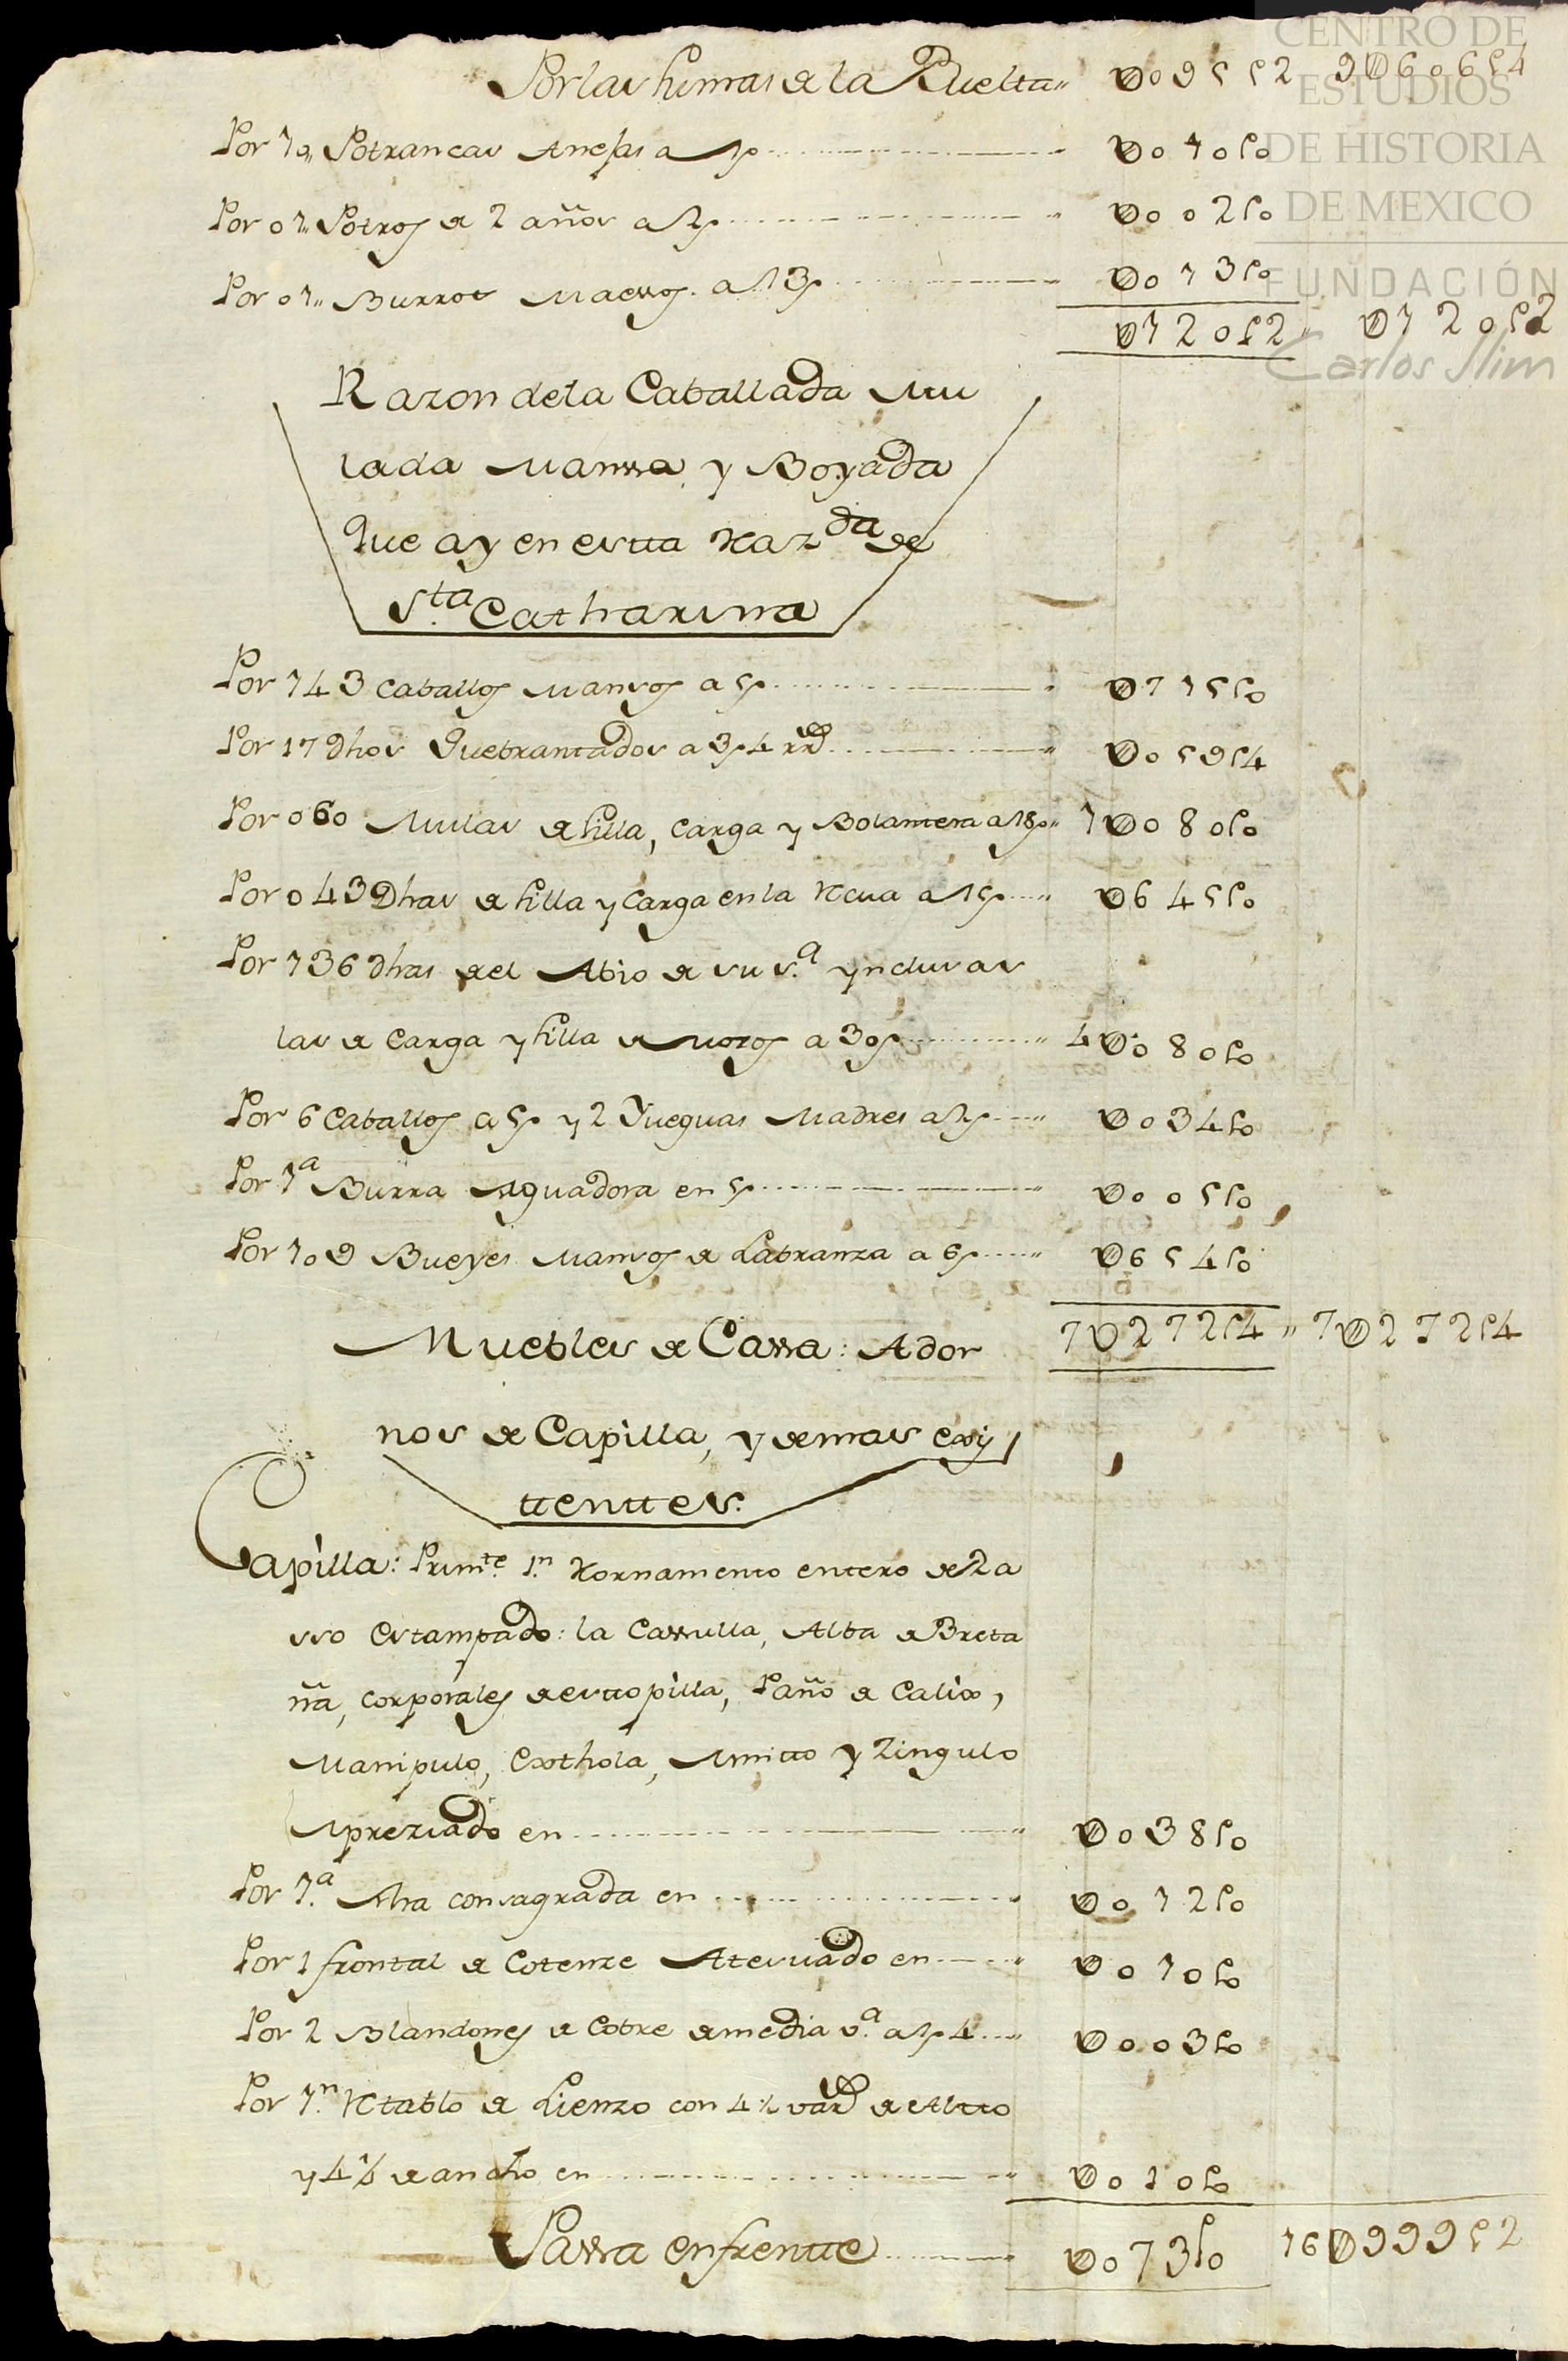 Por las sumas de la Buelta,, U095p2 9U606p4
Por 10,, Potrancas Anejas a 4p U040p0
Por 01,, Potros de 2 años a 2p U002p0
Por 01,, Burrot Maesso. a 13p U013p0
U120p2 U120p2
Razon de la Caballada Mu
lada Manssa, y Boyada
que ay en estta Haz.da de
S.ta Catharina
Por 143 Caballos Mansos a 5p U715p0
Por 17 Dhos Quebrantados a 3p 4 rrs U059p4
Por 060 Mulas de silla, carga y Bolantera a 18p,, 1U080p0
Por 043 Dhas de silla y Carga en la Recua a 15p U645p0
Por 136 Dhas del Abio de su s.a ynclusas
las de Carga y silla de Mozos a 30p 4U080p0
Por 6 Caballos a 5p y 2 Yueguas Madres a 2p U034p0
Por 1.a Burra Aguadora en 5p U005p0
Por 109 Bueyes Mansos de Labranza a 6p U654p0
7U272p4 ,, 7U272p4
Muebles de Cassa: Ador
nos de Capilla, y demas exis
ttenttes.
Capilla: Prim.te 1.n Hornamento entero de Ra
sso Estampado: la Cassulla, Alba de Breta
ña, corporales de esttopilla, Paño de Calix,
Manipulo, Exthola, Amitto y Zingulo
Apreziado en U038p0
Por 1.a Ara consagrada en U012p0
Por 1 frontal de Cotenze Atersiado en U010p0
Por 2 Blandones de Cobre de media v.a a 1p 4 U003p0
Por 1.n Retablo de Lienzo con 4½ vars de Altto
y 4⅓ de ancho en U010p0
Passa enfrentte U073p0 16U999p2
CENTRO DE
ESTUDIOS
DE HISTORIA
DE MEXICO
FUNDACIÓN
Carlos Slim